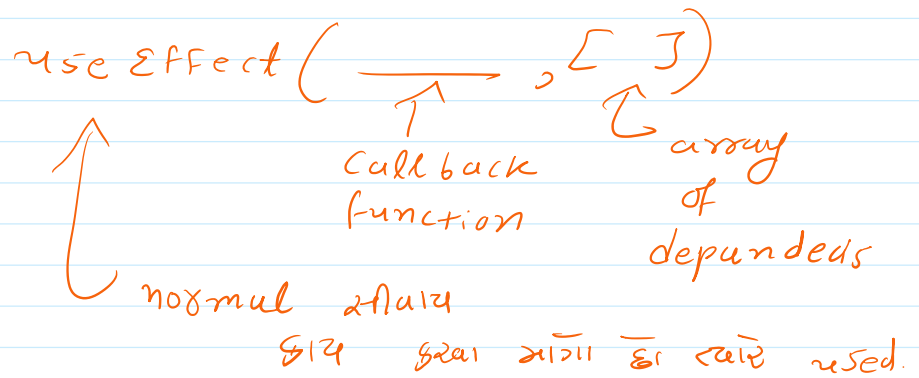 useEffect( ______ , [ ] )
callback
function
array
of
depundecis
normul સીવાય
કાય કરવા માગા હો ત્યારે used.